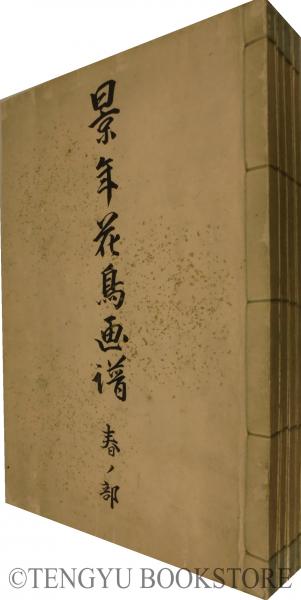 景年花鳥画譜
春ノ部
©TENGYU BOOKSTORE